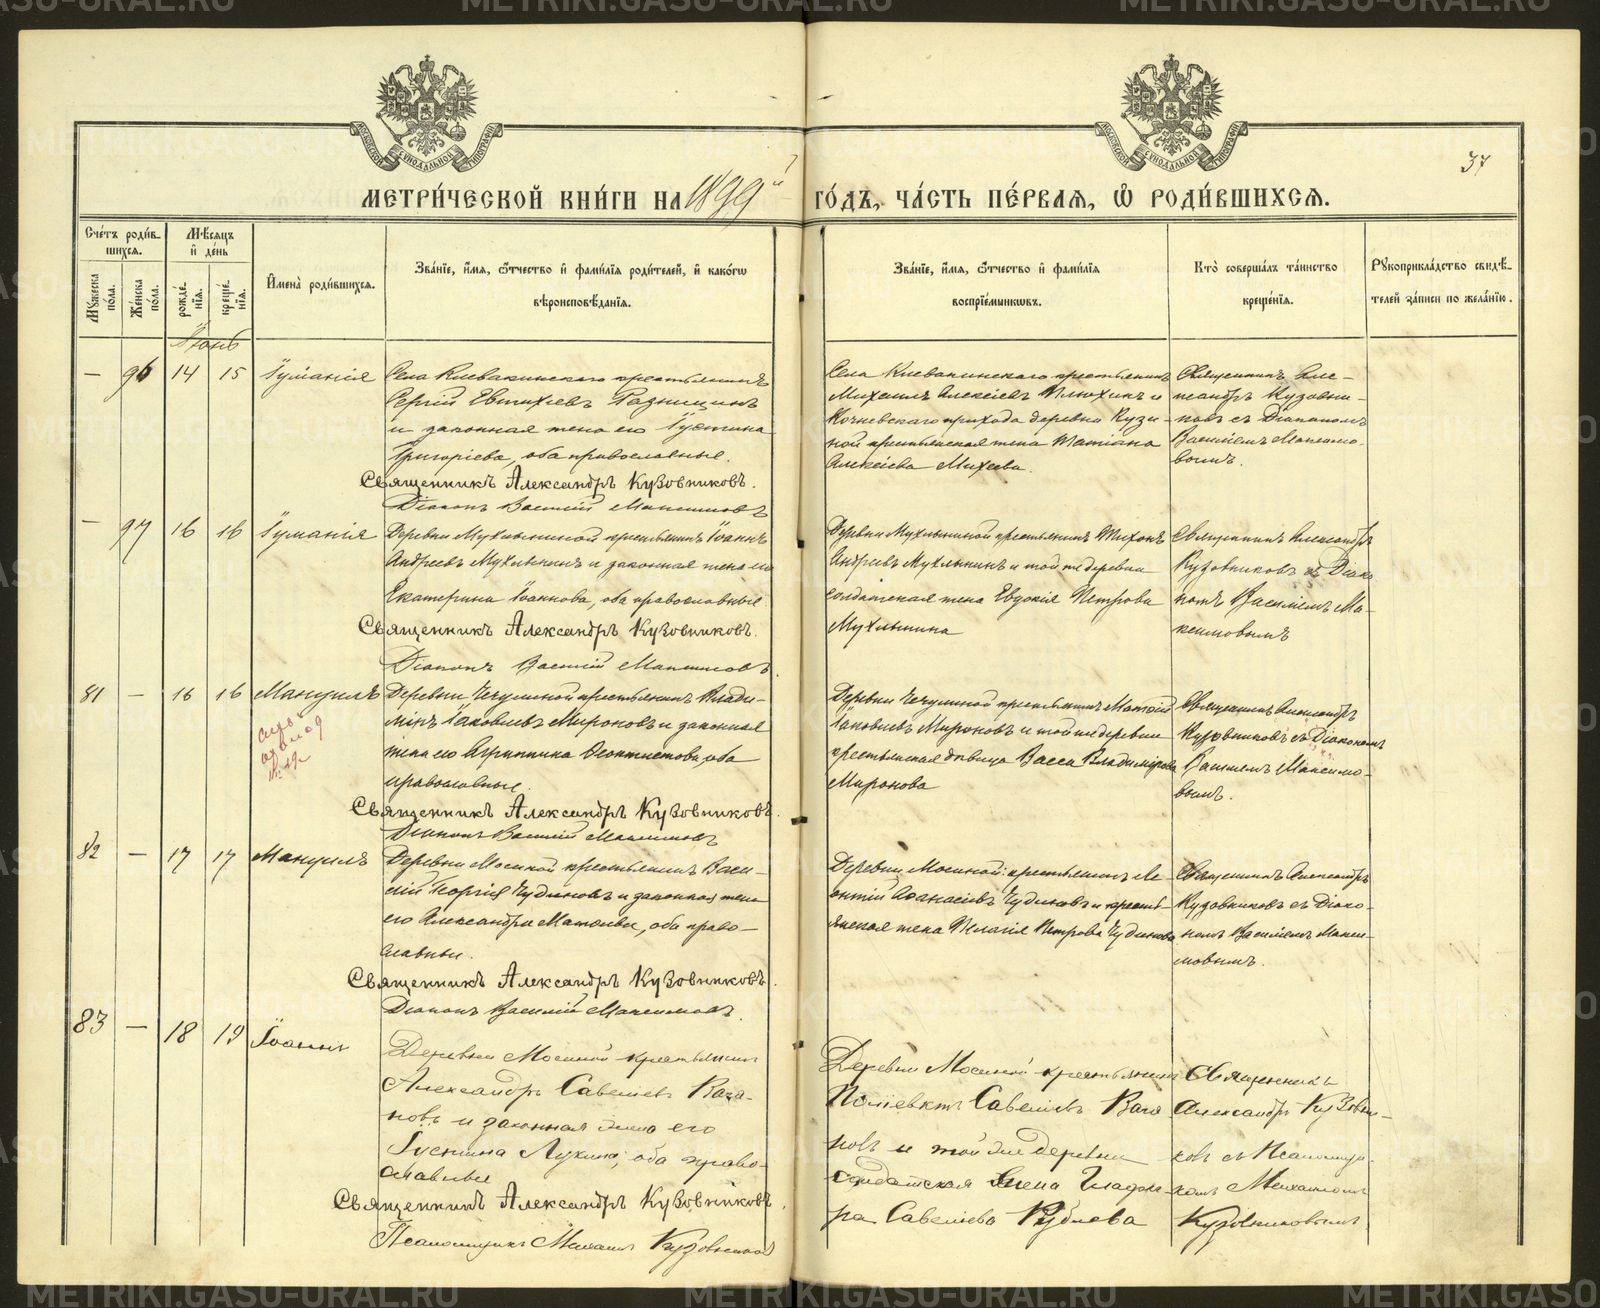 METRIKI.GASU-URAL.RU
37
МЕТРИ́ЧЕСКОЙ КНИ́ГИ НА 1899й ГО́ДЪ, ЧА́СТЬ ПЕ́РВАЯ, Ѽ РОДИ́ВШИХСЯ.
Сче́тъ роди́в-
шихся.
Мꙋжеска пола.
Же́нска по́ла.
Мѣ́сяцъ
и҆ де́нь
рожде́-
нїя.
креще́-
нїя.
И҆мена̀ роди́вшихся.
Зва́нїе, и҆́мя, ѻ҆́тчество и҆ фами́лїя роди́телей, и҆ како́гѡ
вѣроисповѣ́данїя.
Зва́нїе, и҆́мя, ѻ҆́тчество и҆ фами́лїя
воспрїе́мникѡвъ.
Кто̀ соверша́лъ та́инство
креще́нїя.
Рꙋкоприкла́дство свидѣ́-
телей за́писи по жела́нїю.
Іюнь
— 96 14 15 Іуліанія
Села Клевакинскаго крестьянинъ
Сергій Евтихіевъ
и законная жена его Іустина
Григоріева, оба православные.
Священникъ Александръ Кузовниковъ.
Діаконъ Василій Максимовъ
Села Клевакинскаго крестьянинъ
Михаилъ Алексіевъ Плюхинъ и
Кочневскаго прихода деревни Кузи-
ной крестьянская жена Татіана
Алексіева Михеева.
Священникъ Але-
ксандръ Кузовни-
ковъ съ Діакономъ
Василіемъ Максимо-
вымъ.
— 97 16 16 Іуліанія
Деревни Мухлыниной крестьянинъ Іоаннъ
Андреевъ Мухлынинъ и законная жена его
Екатерина Іоаннова, оба православные
Священникъ Александръ Кузовниковъ.
Діаконъ Василій Максимовъ
Деревни Мухлыниной крестьянинъ Тихонъ
Андреевъ Мухлынинъ и той же деревни
солдатская жена Евдокія Петрова
Мухлынина
Священникъ Александръ
Кузовниковъ съ Діако
номъ Василіемъ Ма-
ксимовымъ
81 — 16 16 Мануилъ
Деревни Чечулиной крестьянинъ Влади-
міръ Іаковлевъ Мироновъ и законная
жена его Агриппина Феоктистова, оба
православные.
Священникъ Александръ Кузовниковъ.
Діаконъ Василій Максимовъ
Деревни Чечулиной крестьянинъ Матѳій
Іаковлевъ Мироновъ и той же деревни
крестьянская дѣвица Васса Владимірова
Миронова
Священникъ Александръ
Кузовниковъ съ Діакономъ
Василіемъ Максимо-
вымъ.
82 — 17 17 Мануилъ
Деревни Мосиной крестьянинъ Васи-
лій Георгіевъ Чудиновъ и законная жена
его Александра Матѳіева, оба право-
славные.
Священникъ Александръ Кузовниковъ.
Діаконъ Василій Максимовъ.
Деревни Мосиной крестьянинъ Ле-
онтій Аѳанасіевъ Чудиновъ и кресть-
янская жена Пелагія Петрова Чудинова
Священникъ Александръ
Кузовниковъ съ Діако-
номъ Василіемъ Макси-
мовымъ.
83 — 18 19 Іоаннъ
Деревни Мосиной крестьянинъ
Александръ Савеліевъ Вага-
новъ и законная жена его
Іустина Лукина, оба право-
славные
Священникъ Александръ Кузовниковъ.
Псаломщикъ Михаилъ Кузовниковъ
Деревни Мосиной крестьянинъ
Поліевктъ Савеліевъ Вага
новъ и той же деревни
солдатская жена Глафи-
ра Савеліева
Священникъ
Александръ Кузовни-
ковъ съ Псаломщи-
комъ Михаиломъ
Кузовниковымъ